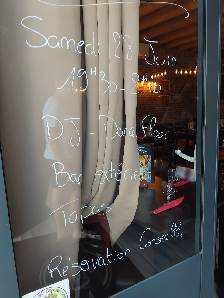 Samedi 22 Juin
19H30
DJ - Dancefloor
Bar extérieur
Tapas
Réservation Conseillée